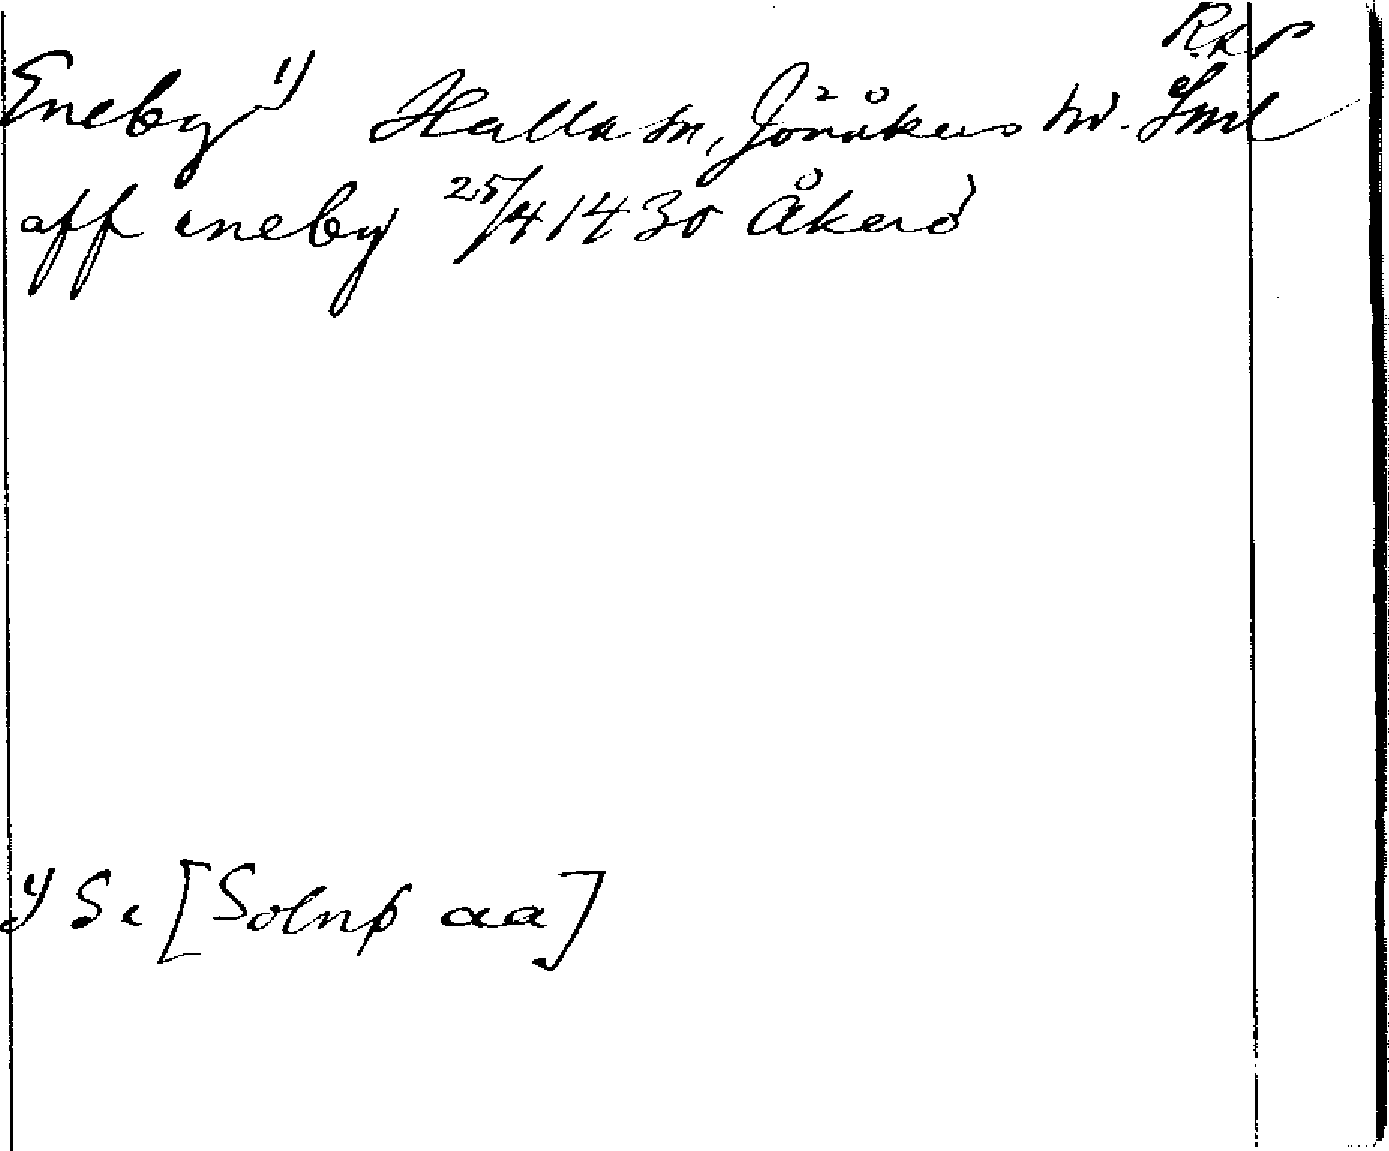 RAP
Eneby 1) Halla sn, Jönåkers hd. Sml
aff eneby 25/4 1430 Åkerö
1) Se [Solnp aa]